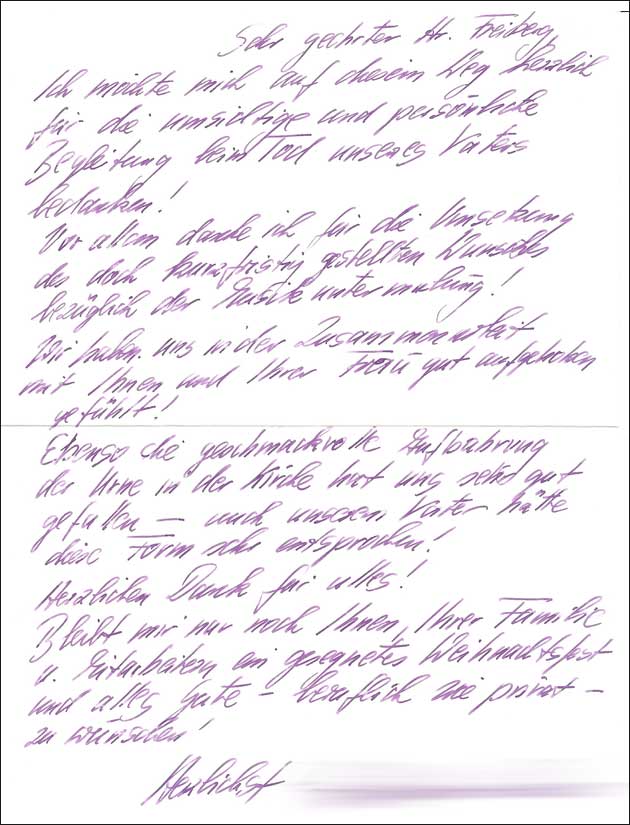 Sehr geehrter Hr. Freiberg,
Ich möchte mich auf diesem Weg herzlich
für die umsichtige und persönliche
Begleitung beim Tod unseres Vaters
bedanken!
Vor allem danke ich für die Umsetzung
des doch kurzfristig gestellten Wunsches
bezüglich der Musikuntermalung!
Wir haben uns in der Zusammenarbeit
mit Ihnen und Ihrer Frau gut aufgehoben
gefühlt!
Ebenso die geschmackvolle Aufbahrung
der Urne in der Kirche hat uns sehr gut
gefallen – auch unserem Vater hätte
diese Form sehr entsprochen!
Herzlichen Dank für alles!
Bleibt mir nur noch Ihnen, Ihrer Familie
u. Mitarbeitern ein gesegnetes Weihnachtsfest
und alles Gute – beruflich wie privat –
zu wünschen!
Herzlichst